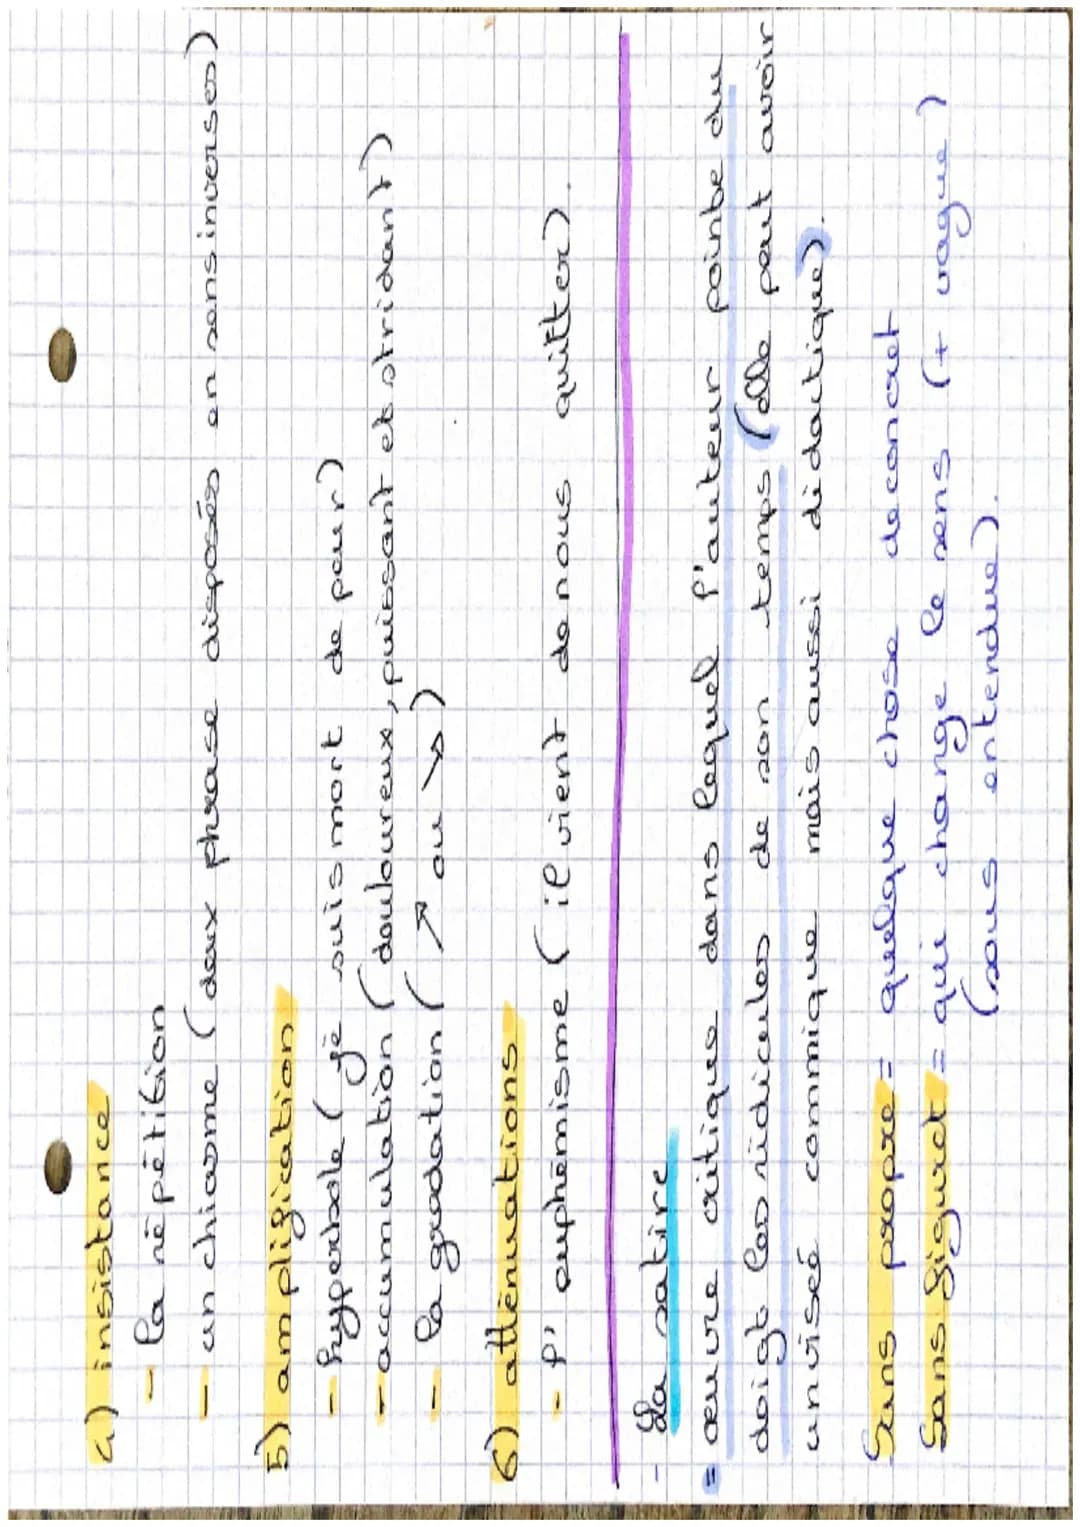 4) insistance
- la répétition
- un chiasme (deux phrase disposés en sens inverses)
5) amplification
- hyperbole (je suis mort de peur)
- accumulation (douloureux, puissant et stridant)
- la gradation (↗ ou ↘)
6) atténuations
- l' euphémisme (il vient de nous quitter).
- La satire
= œuvre critique dans lequel l'auteur pointe du
doigt les ridicules de son temps (elle peut avoir
un viseé commique mais aussi didactique).
Sens propre = quelque chose de concret
Sens figuret = qui change le sens (+ vague)
(sous entendue).